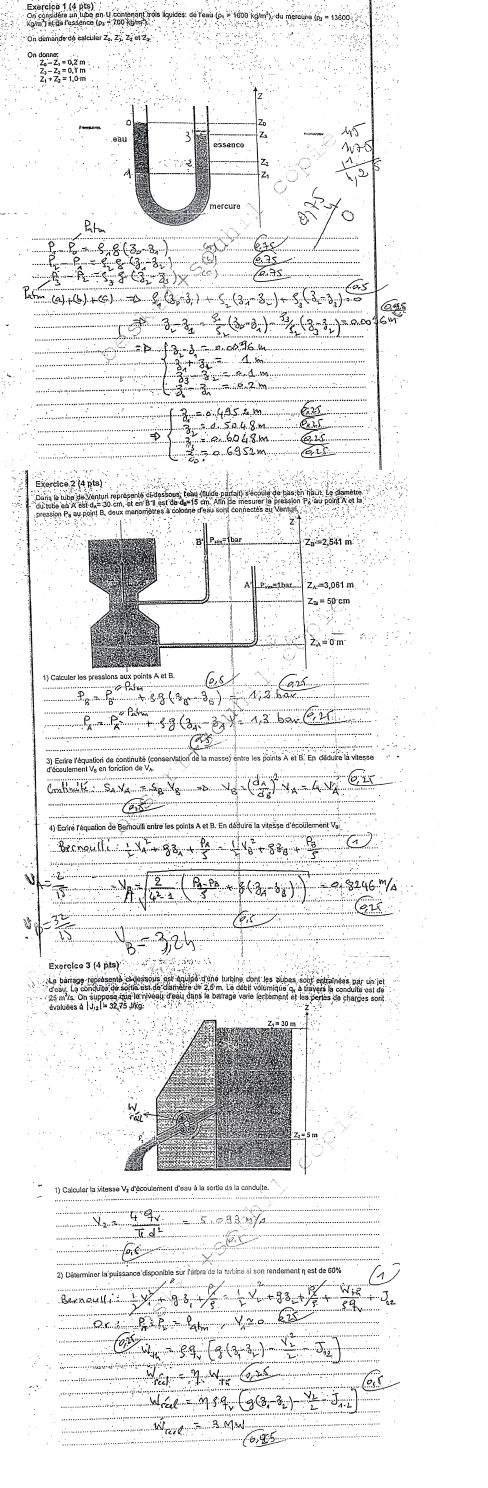 Exercice 1 (4 pts)
On considère un tube en U contenant trois liquides: de l'eau (ρ₁ = 1000 kg/m³), du mercure (ρ₂ = 13600
kg/m³) et de l'essence (ρ₃ = 700 kg/m³).
On demande de calculer Z₀, Z₁, Z₂ et Z₃.
On donne:
Z₀ – Z₁ = 0,2 m
Z₃ – Z₂ = 0,1 m
Z₁ + Z₂ = 1,0 m
Z
0 Z₀
3 Z₃
eau
essence
2 Z₂
1 Z₁
mercure
Patm
P₁ - P₀ = ρ₁ g (z₀ - z₁) (a) 0,75
P₂ - P₁ = ρ₂ g (z₁ - z₂) (b) 0,75
P₃ - P₂ = ρ₃ g (z₂ - z₃) (c) 0,75
Patm
(a) + (b) + (c) ⇒ ρ₁ (z₀ - z₁) + ρ₂ (z₁ - z₂) + ρ₃ (z₂ - z₃) = 0 0,5
⇒ z₂ - z₁ = ρ₁/ρ₂ (z₀ - z₁) - ρ₃/ρ₂ (z₃ - z₂) = 0.0096 m
⇒ z₂ - z₁ = 0.0096 m
z₁ + z₂ = 1 m
z₃ - z₂ = 0.1 m
z₀ - z₁ = 0.2 m
z₁ = 0.4952 m 0,25
⇒ z₂ = 0.5048 m 0,25
z₃ = 0.6048 m 0,25
z₀ = 0.6952 m 0,25
Exercice 2 (4 pts)
Dans le tube de Venturi représenté ci-dessous, l'eau (fluide parfait) s'écoule de bas en haut. Le diamètre
du tube en A est dA= 30 cm, et en B il est de dB=15 cm. Afin de mesurer la pression PA au point A et la
pression PB au point B, deux manomètres à colonne d'eau sont connectés au Venturi.
Z
B' Patm=1bar ZB'=2,541 m
A' Patm=1bar ZA'=3,061 m
ZB = 50 cm
ZA = 0 m
1) Calculer les pressions aux points A et B.
Patm
PB = PB' + ρg (zB' - zB) = 1,2 bar 0,25
Patm
PA = PA' + ρg (zA' - zA) = 1,3 bar 0,25
3) Ecrire l'équation de continuité (conservation de la masse) entre les points A et B. En déduire la vitesse
d'écoulement VB en fonction de VA.
Continuité: SA VA = SB VB ⇒ VB = (dA/dB)² VA = 4 VA 0,25
4) Ecrire l'équation de Bernoulli entre les points A et B. En déduire la vitesse d'écoulement VB.
Bernoulli: 1/2 VA² + g zA + PA/ρ = 1/2 VB² + g zB + PB/ρ 1
VA = √(2/(4²-1) (PA-PB/ρ + g (zA - zB))) = 0,8246 m/s
0,25
0,5
VB = 3,24
Exercice 3 (4 pts)
Le barrage représenté ci-dessous est équipé d'une turbine dont les aubes sont entraînées par un jet
d'eau. La conduite de sortie est de diamètre d= 2,5 m. Le débit volumique qv à travers la conduite est de
25 m³/s. On suppose que le niveau d'eau dans le barrage varie lentement et les pertes de charges sont
évaluées à |J₁₂|= 32,75 J/kg.
Z
Z₁ = 30 m
W réel
Z₂= 5 m
1) Calculer la vitesse V₂ d'écoulement d'eau à la sortie de la conduite.
V₂ = 4 qv / π d² = 5.093 m/s
0,5
2) Déterminer la puissance disponible sur l'arbre de la turbine si son rendement η est de 60%
1
Bernoulli: 1/2 V₁² + g z₁ + P₁/ρ = 1/2 V₂² + g z₂ + P₂/ρ + Wth/ρqv + J₁₂
Or: P₁ = P₂ = Patm, V₁ ≈ 0 0,25
0,25 Wth = ρ qv [g (z₁ - z₂) - V₂²/2 - J₁₂]
Wréel = η . Wth 0,25
Wréel = η ρ qv [g (z₁ - z₂) - V₂²/2 - J₁₂] 0,5
Wréel = 3 MW